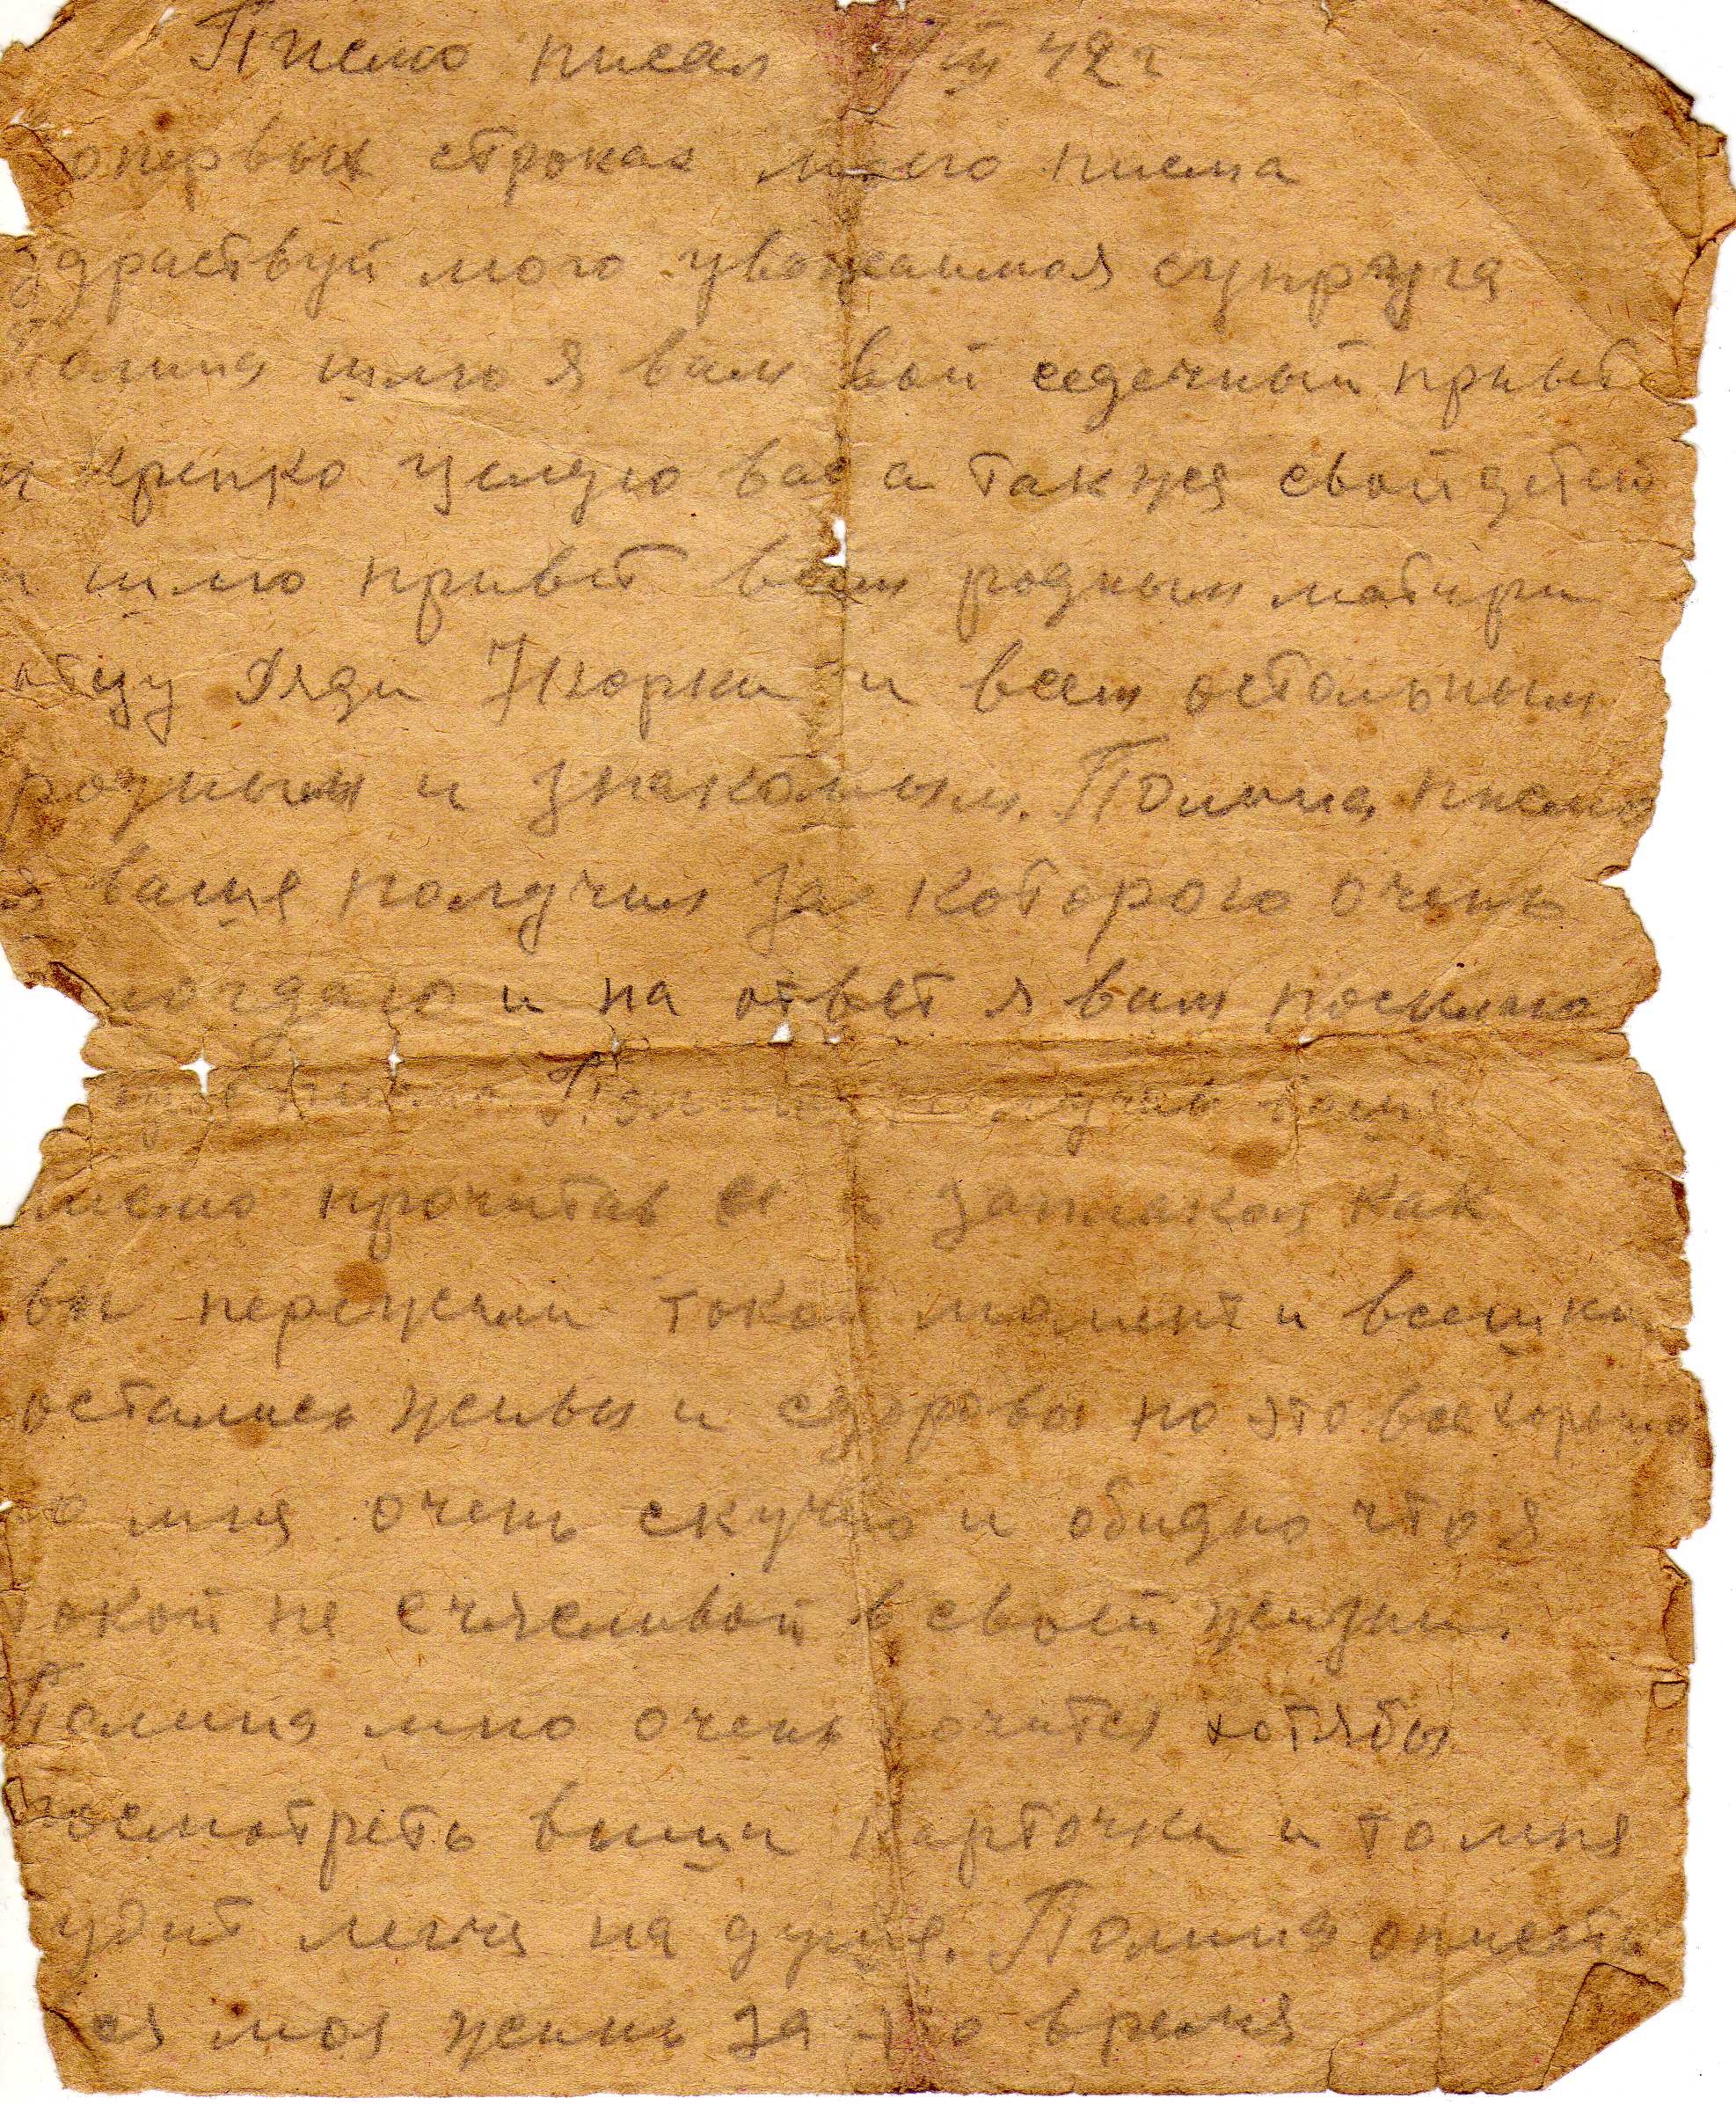 Писмо писал III 42 г
опервых строках моего писма
здраствуй мого уважаимоя супруга
Полина шлю я вам свой седечный привет
и крепко целую вас а такжея свой дитей
и шлю привет всем родным матири
отцу Дяди Юорки и всем остольным
родным и знакомым. Полина писмо
я вашя получил за которого очень
и на ответ я вам посылаю
писмо Полина получив вашя
писмо прочитав ее и заплакал как
вы пережили токой момент и всешки
остались живы и сдоровы но это все хорошо
но мня очень скучно и обидно что я
токой не счясливой в своей жизни.
Полина мно очень хочится хотябы
посмотреть ваши карточки и то мня
будит легчи на душе. Полина описать
вся моя жизнь за это время